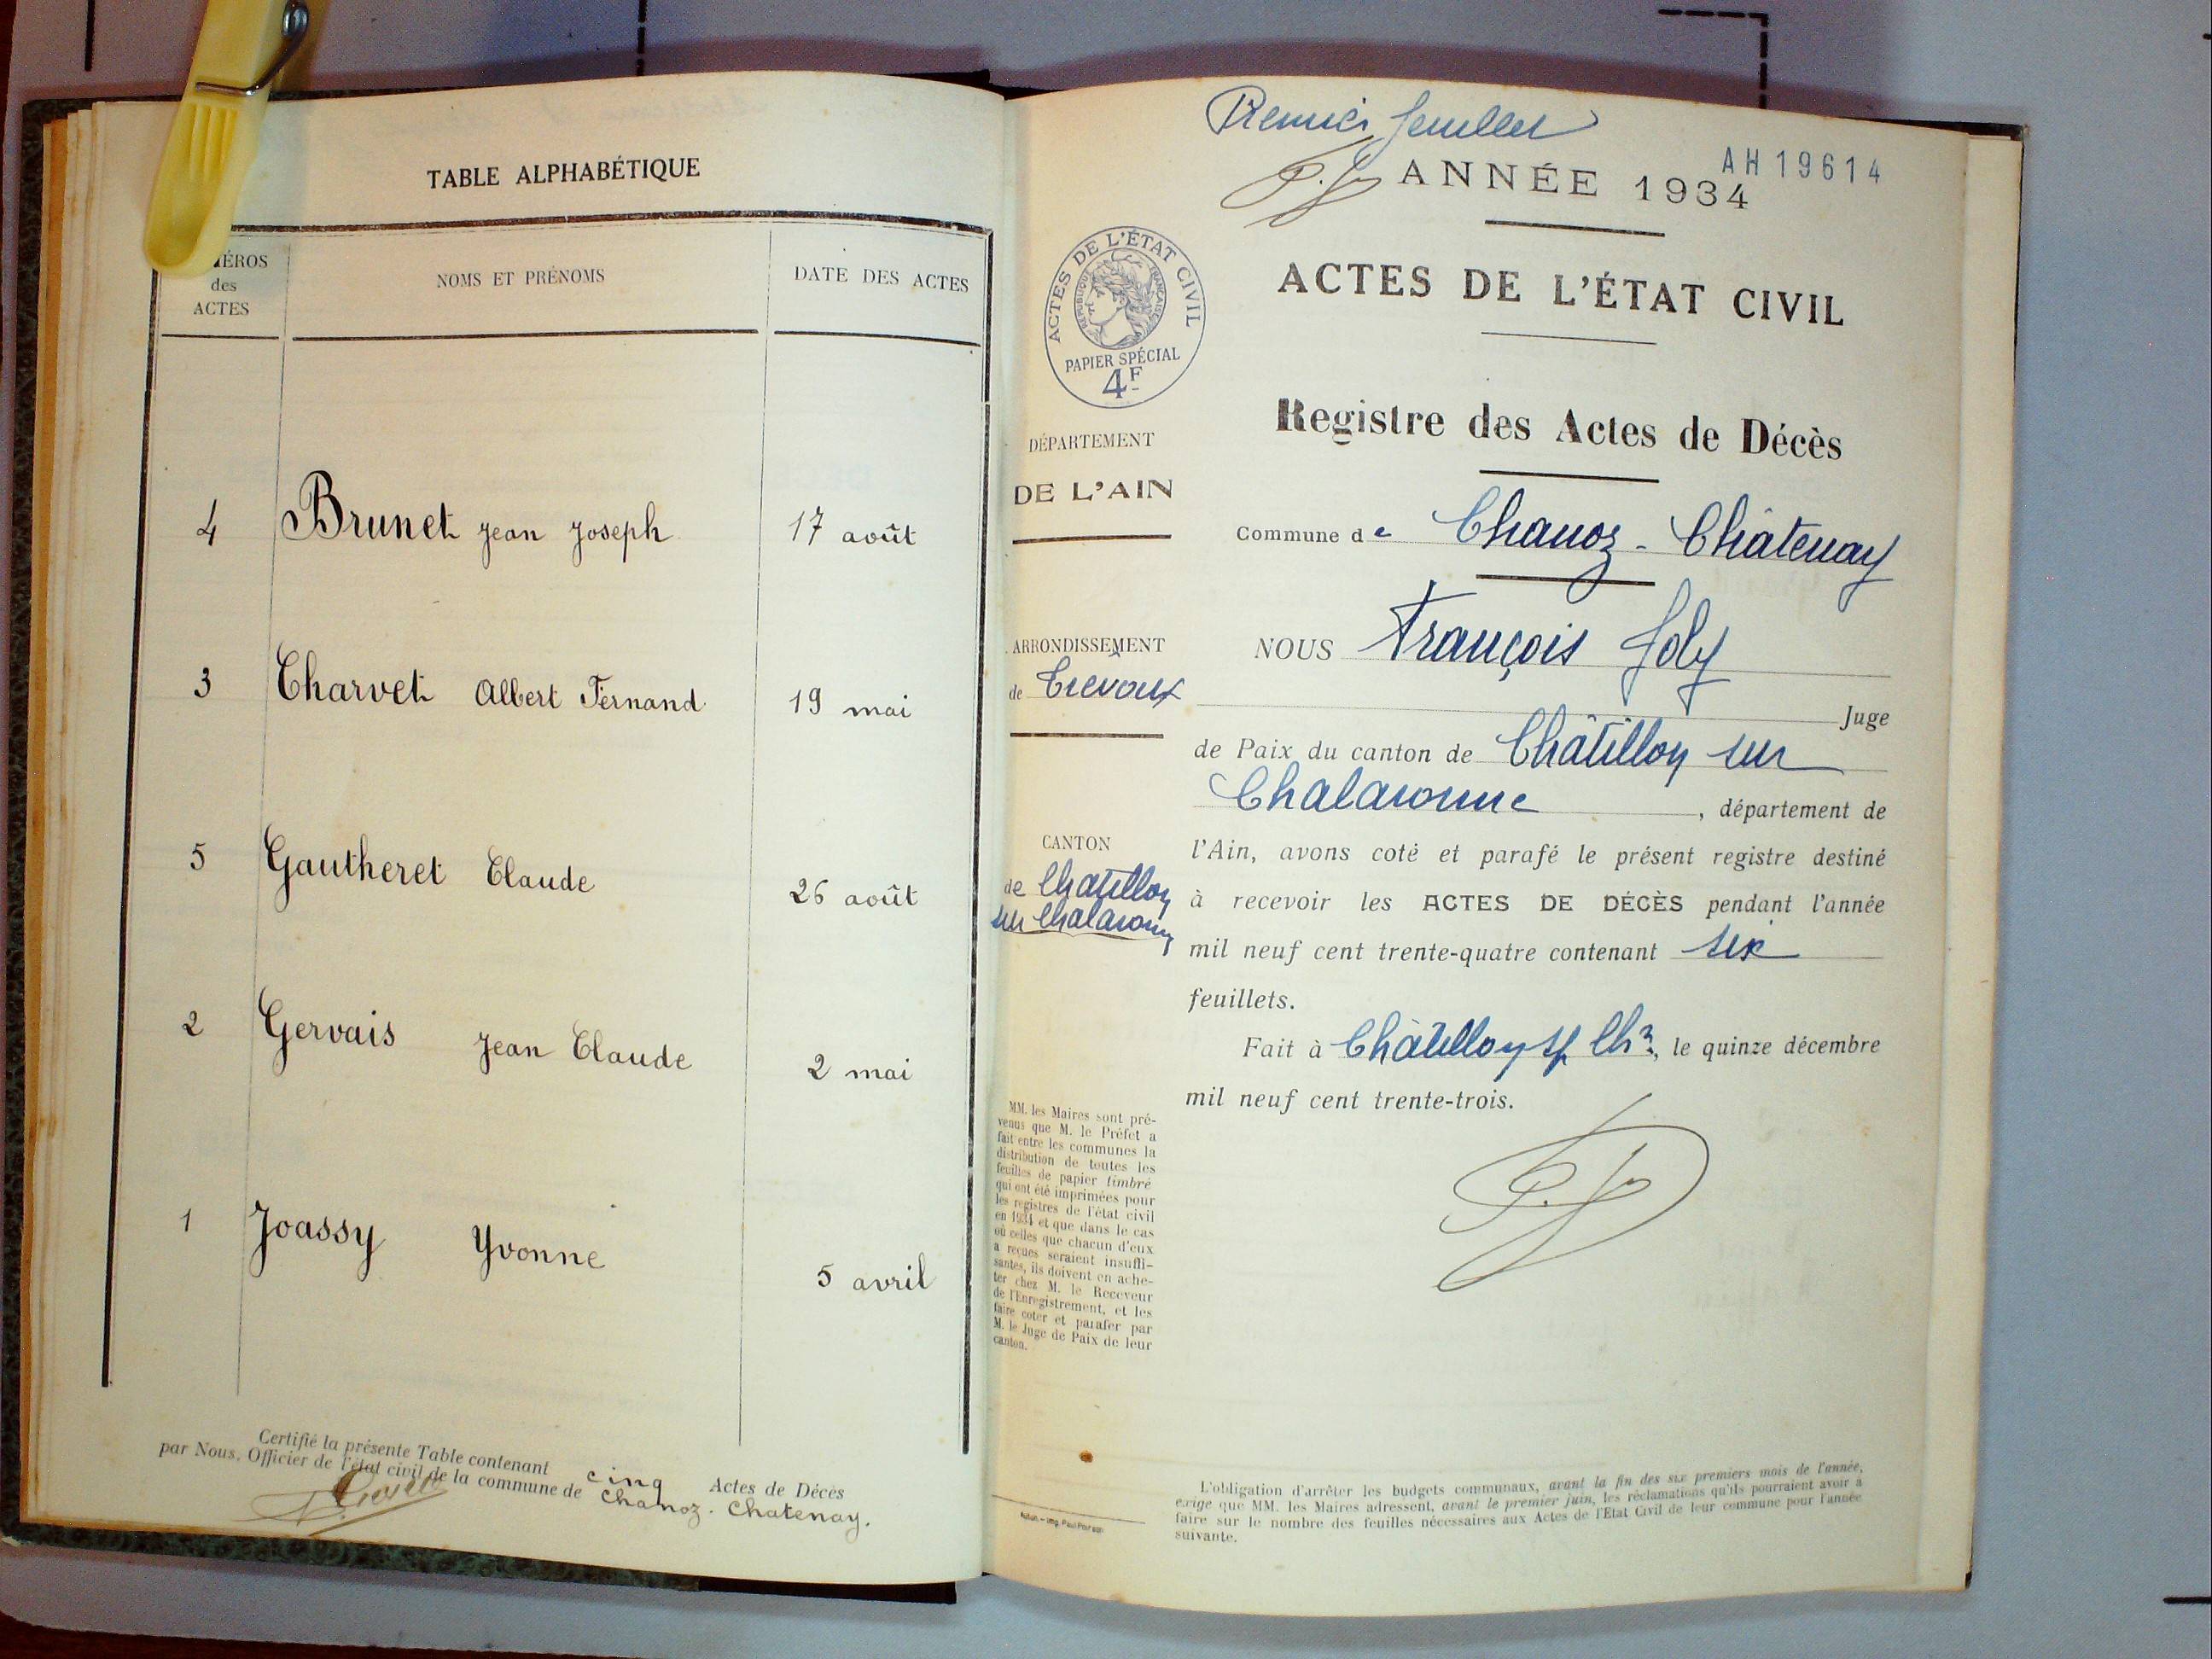 TABLE ALPHABÉTIQUE
ÉROS
des
ACTES
NOMS ET PRÉNOMS
DATE DES ACTES
4 Brunet Jean Joseph 17 août
3 Charvet Albert Fernand 19 mai
5 Gautheret Claude 26 août
2 Gervais Jean Claude 2 mai
1 Joassy Yvonne 5 avril
Certifié la présente Table contenant cinq Actes de Décès
par Nous, Officier de l'état civil de la commune de Chanoz-Chatenay.
Premier feuillet
AH 19614
ANNÉE 1934
ACTES DE L'ÉTAT CIVIL
RÉPUBLIQUE FRANÇAISE
PAPIER SPÉCIAL
4F
DÉPARTEMENT
DE L'AIN
ARRONDISSEMENT
de Trévoux
CANTON
de Chatillon
sur Chalaronne
MM. les Maires sont pré-
venus que M. le Préfet a
fait entre les communes la
distribution de toutes les
feuilles de papier timbré
qui ont été imprimées pour
les registres de l'état civil
en 1934 et que dans le cas
où celles que chacun d'eux
a reçues seraient insuffi-
santes, ils doivent en ache-
ter chez M. le Receveur
de l'Enregistrement, et les
faire coter et parafer par
M. le Juge de Paix de leur
canton.
ACTES DE L'ÉTAT CIVIL
Registre des Actes de Décès
Commune de Chanoz-Châtenay
NOUS François Joly
Juge
de Paix du canton de Châtillon sur
Chalaronne, département de
l'Ain, avons coté et parafé le présent registre destiné
à recevoir les ACTES DE DÉCÈS pendant l'année
mil neuf cent trente-quatre contenant six
feuillets.
Fait à Châtillon s/ Chne, le quinze décembre
mil neuf cent trente-trois.
L'obligation d'arrêter les budgets communaux, avant la fin des six premiers mois de l'année,
exige que MM. les Maires adressent, avant le premier juin, les réclamations qu'ils pourraient avoir à
faire sur le nombre des feuilles nécessaires aux Actes de l'Etat Civil de leur commune pour l'année
suivante.